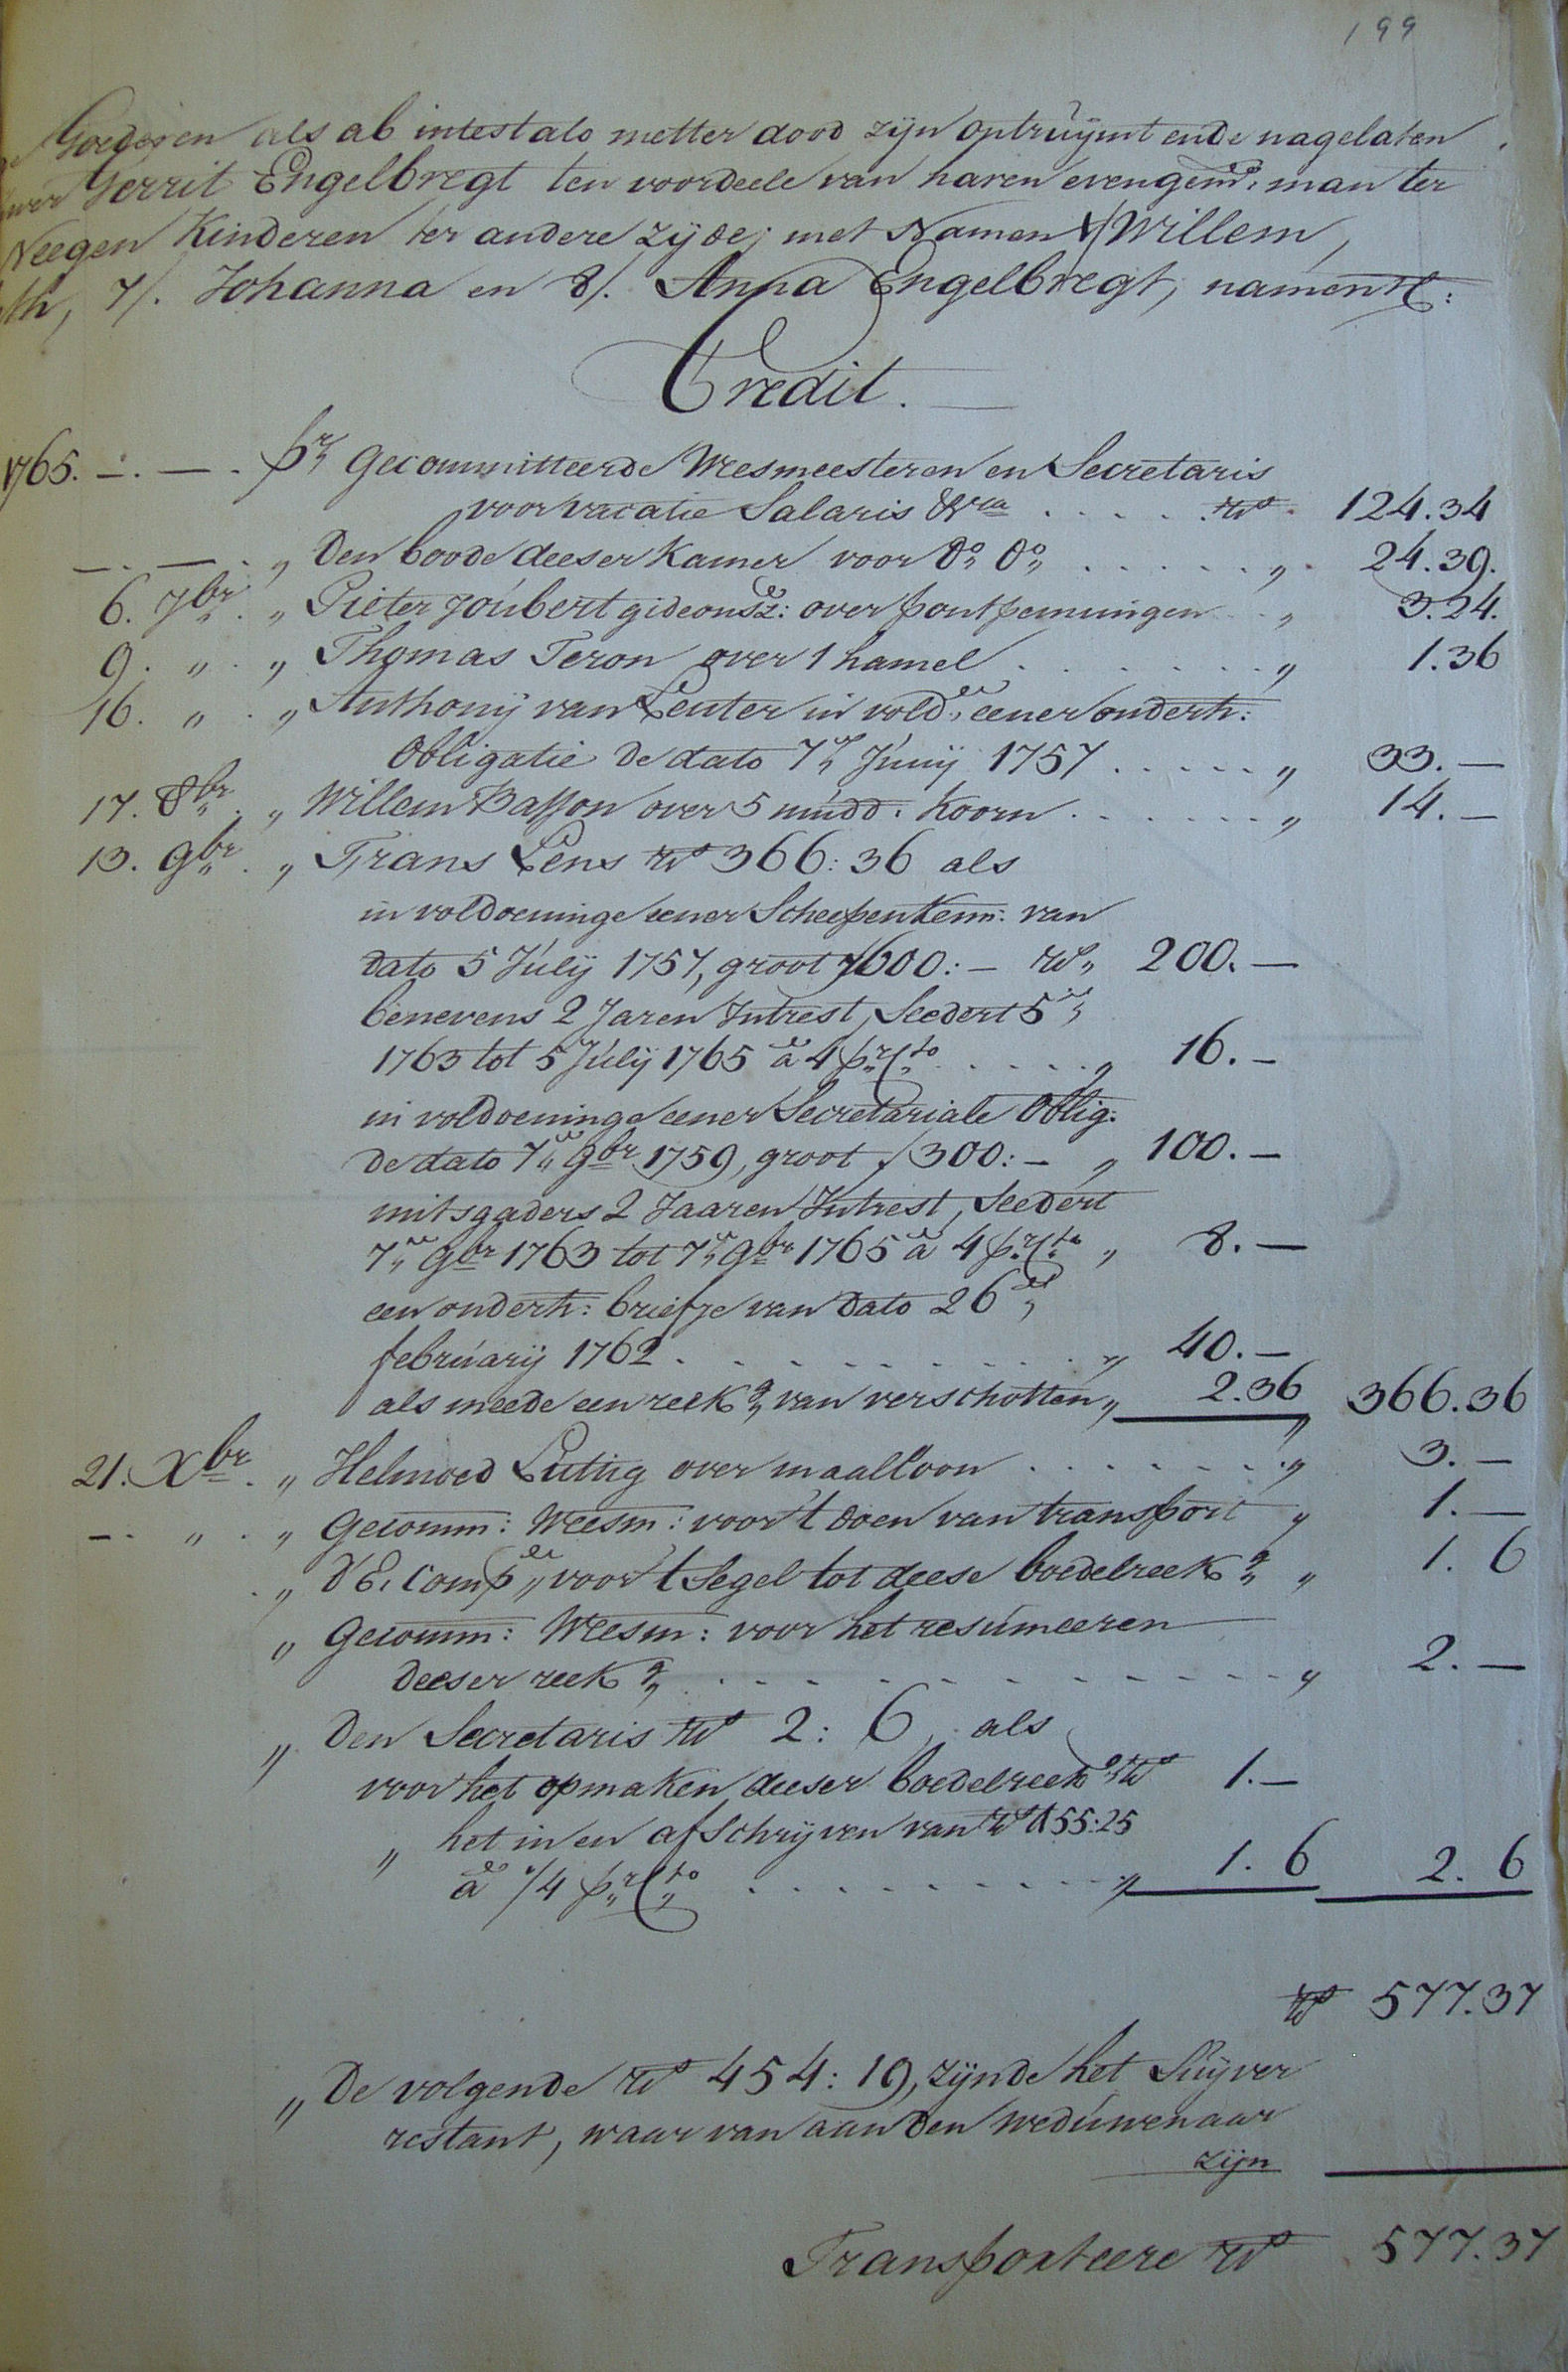 199
Goederen als ab intestato metter dood zijn ontruijmt ende nagelaten
Gerrit Engelbregt ten voordeele van haren evengem: man ter
Neegen Kinderen ter andere zijde; met Namen 1/ Willem,
th, 7/. Johanna en 8/. Anna Engelbregt, namentl:
Credit.
1765. —. —. pr Gecommitteerde Weesmeesteren en Secretaris
voor vacatie Salaris &ca . . . . . Rds. 124.34
—. —. „ Den boode deeser Kamer voor do. do. . . . . . „ 24.39.
6. 7br. „ Pieter Joubert gideonsz: over pontpenningen . . „ 3.24.
9. „ . „ Thomas Teron over 1 hamel . . . . . . . „ 1.36
16. „ . „ Anthonij van Lenter in vold: eener onderh:
Obligatie de dato 7e Junij 1757 . . . . . „ 33. —
17. 8br. „ Willem Basson over 5 mudd: Koorn . . . . . . . „ 14. —
13. 9br. „ Frans Lens Rds 366:36 als
in voldoeninge eener Scheepenkenn: van
dato 5 Julij 1757, groot ƒ600:— Rds „ 200. —
benevens 2 Jaren Intrest, Seedert 5e
1763 tot 5 Julij 1765 à 4 pr Cto . . . . . „ 16. —
in voldoeninge eener Secretariale Oblig:
de dato 7e 9br 1759, groot ƒ300:— „ 100. —
mitsgaders 2 Jaaren Intrest, Seedert
7e 9br 1763 tot 7e 9br 1765 à 4 pr Cto „ 8. —
een onderh: briefje van dato 26e
february 1762 . . . . . . . . . . „ 40. —
als meede een reekg van verschotten „ 2.36 366.36
21. Xbr. „ Helmoed Luttig over maalloon . . . . . . . „ 3. —
—. „ . „ Gecomm: Weesm: voor 't doen van transport „ 1. —
. „ d'E: Compe voor 't Segel tot deese boedelreekg „ 1. 6
„ Gecomm: Weesm: voor het resumeeren
deeser reekg . . . . . . . . . . . . . „ 2. —
„ Den Secretaris Rds 2: 6, als
voor het opmaken deeser boedelreekg Rds 1. —
„ het in en afschrijven van Rds 455:25
à 1/4 pr Cto . . . . . . . . . „ 1. 6 2. 6
Rds 577.37
„ De volgende Rds 454:19, zijnde het Suijver
restant, waar van aan den weduwenaar
zijn
Transporteere Rds 577.37